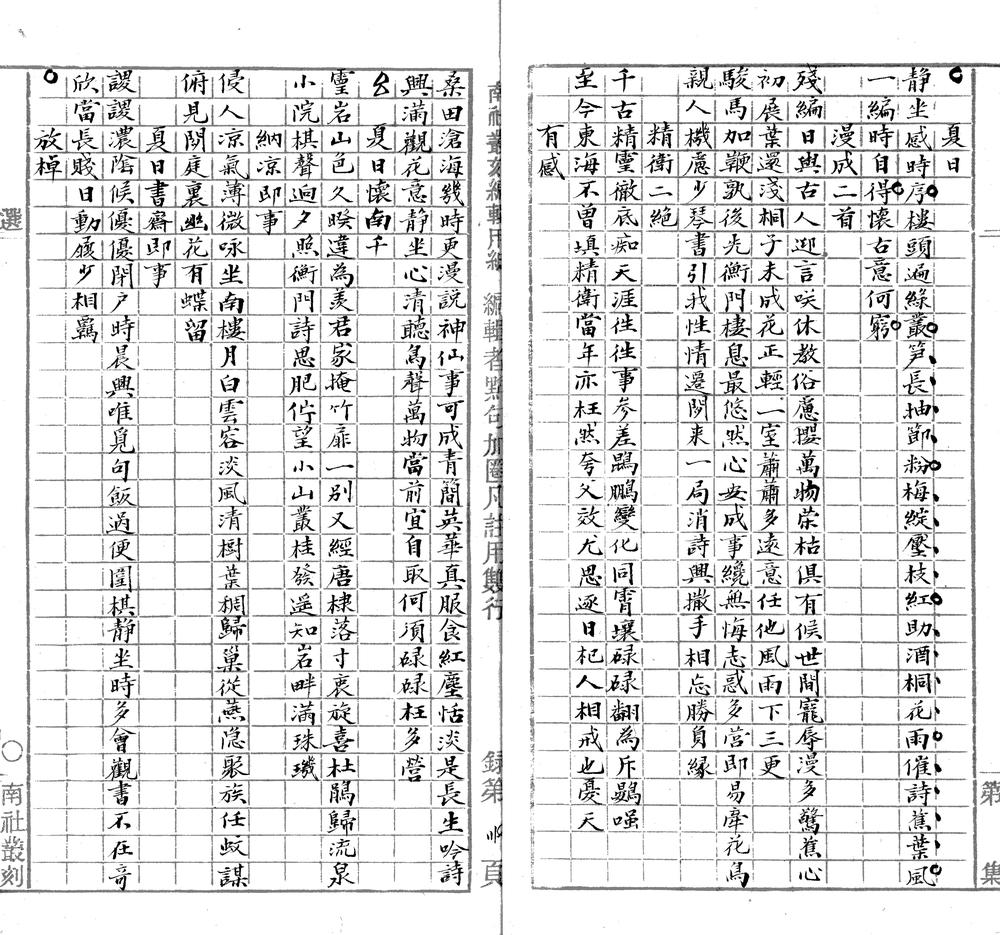 第 集
夏日
静坐感時序樓頭遍綠叢笋長抽節粉梅綻壓枝紅助酒桐花雨催詩蕉葉風
一編時自得懷古意何窮
漫成二首
殘編日與古人迎言咲休教俗慮攖萬物荣枯俱有候世間寵辱漫多驚蕉心
初展葉還淺桐子未成花正輕一室蕭蕭多遠意任他風雨下三更
駿馬加鞭孰後先衡門棲息最悠然心安成事纔無悔志惑多営即易牽花鳥
親人機慮少琴書引我性情遷閑来一局消詩興撒手相忘勝負緣
精衛二絶
千古精靈徹底痴天涯往往事參差鵾鵬變化同霄壤碌碌翻為斥鷃嗤
至今東海不曾填精衛當年亦枉然夸父效尤思逐日杞人相戒也憂天
有感
南社叢刻編輯用紙 編輯者點句加圈凡註用雙行 録第 頁
桑田滄海幾時更漫説神仙事可成青簡英華真服食紅塵恬淡是長生吟詩
興满觀花意静坐心清聽鳥聲萬物當前宜自取何須碌碌枉多營
夏日懷南千
靈岩山色久睽違為羨君家掩竹扉一別又經唐棣落寸衷旋喜杜鵑歸流泉
小院棋聲迥夕照衡門詩思肥佇望小山叢桂發遥知岩畔满珠璣
納凉即事
侵人凉氣薄微咏坐南樓月白雲容淡風清樹葉稠歸巢從燕隐聚族任蚊謀
俯見閑庭裏幽花有蝶留
夏日書齋即事
謖謖濃陰候優優閉户時晨興唯覓句飯過便圍棋静坐時多會觀書不在奇
欣當長賤日動履少相羈
放棹
選 〇 南社叢刻